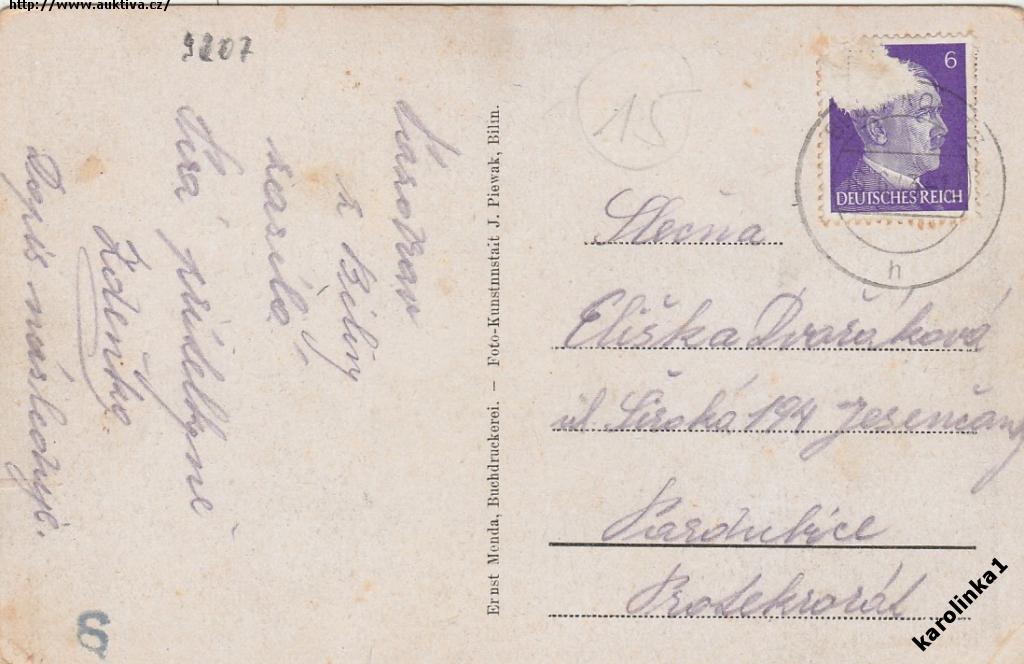 http://www.auktiva.cz/
9207
15
Pozdrav
z Bíliny
zasílá
Zdeňka.
Dopis následuje.
Ernst Menda, Buchdruckerei. – Foto-Kunstnnstalt J. Piewak, Bilin.
6
DEUTSCHES REICH
h
Slečna
Eliška Dvořáková
ul. Široká 194 Jesenčany
Pardubice
Protektorát
8
karolinka1